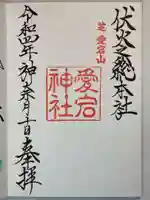 伏火之総本社
芝 愛宕山
愛宕
神社
令和四年 月十日 奉拝